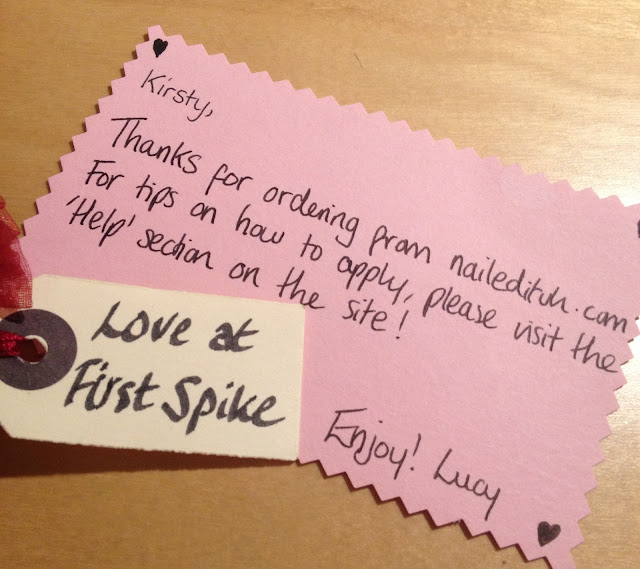 Kirsty,
Thanks for ordering from nailedituk.com
For tips on how to apply, please visit the
'Help' section on the site!
Love at
First Spike
Enjoy! Lucy